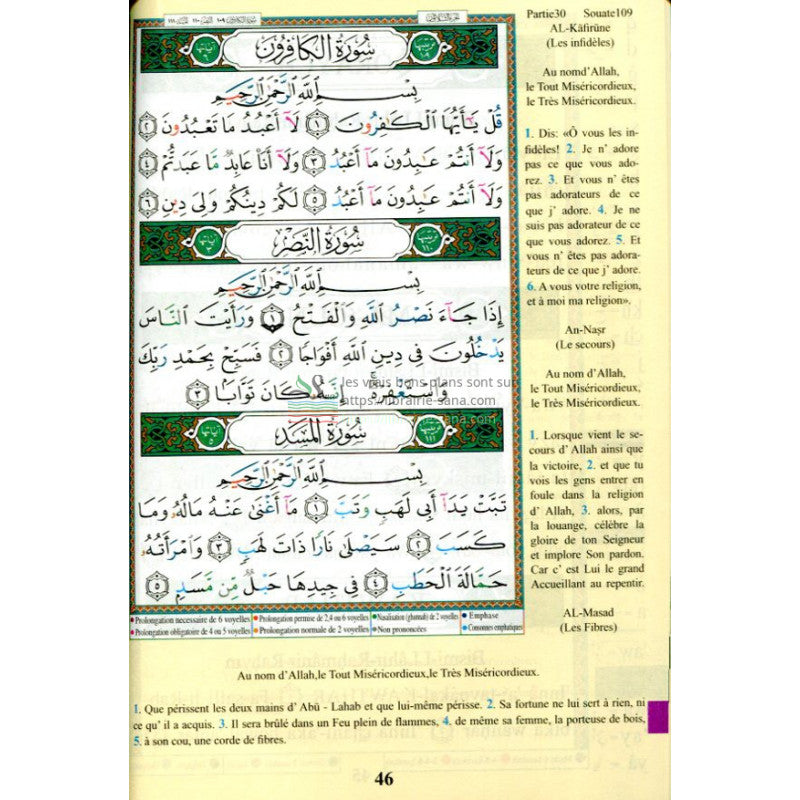 سُورَةُ الكَافِرُونَ
بِسْمِ ٱللَّهِ ٱلرَّحْمَٰنِ ٱلرَّحِيمِ
قُلْ يَٰٓأَيُّهَا ٱلْكَٰفِرُونَ ١ لَآ أَعْبُدُ مَا تَعْبُدُونَ ٢
وَلَآ أَنتُمْ عَٰبِدُونَ مَآ أَعْبُدُ ٣ وَلَآ أَنَا۠ عَابِدٌ مَّا عَبَدتُّمْ ٤
وَلَآ أَنتُمْ عَٰبِدُونَ مَآ أَعْبُدُ ٥ لَكُمْ دِينُكُمْ وَلِىَ دِينِ ٦
سُورَةُ النَّصْرِ
بِسْمِ ٱللَّهِ ٱلرَّحْمَٰنِ ٱلرَّحِيمِ
إِذَا جَآءَ نَصْرُ ٱللَّهِ وَٱلْفَتْحُ ١ وَرَأَيْتَ ٱلنَّاسَ
يَدْخُلُونَ فِى دِينِ ٱللَّهِ أَفْوَاجًا ٢ فَسَبِّحْ بِحَمْدِ رَبِّكَ
وَٱسْتَغْفِرْهُ إِنَّهُۥ كَانَ تَوَّابًۢا ٣
les vrais bons plans sont sur
https://librairie-sana.com
سُورَةُ المَسَدِ
بِسْمِ ٱللَّهِ ٱلرَّحْمَٰنِ ٱلرَّحِيمِ
تَبَّتْ يَدَآ أَبِى لَهَبٍ وَتَبَّ ١ مَآ أَغْنَىٰ عَنْهُ مَالُهُۥ وَمَا
كَسَبَ ٢ سَيَصْلَىٰ نَارًا ذَاتَ لَهَبٍ ٣ وَٱمْرَأَتُهُۥ
حَمَّالَةَ ٱلْحَطَبِ ٤ فِى جِيدِهَا حَبْلٌ مِّن مَّسَدٍۭ ٥
Prolongation necessaire de 6 voyelles Prolongation permise de 2,4 ou 6 voyelles Nasalisation (ghunnah) de 2 voyelles Emphase
Prolongation obligatoire de 4 ou 5 voyelles Prolongation normale de 2 voyelles Non prononcées Consonnes emphatiques
Partie30 Souate109
AL-Kāfirūne
(Les infidèles)
Au nomd'Allah,
le Tout Miséricordieux,
le Très Miséricordieux.
1. Dis: «Ô vous les in-
fidèles! 2. Je n' adore
pas ce que vous ado-
rez. 3. Et vous n' êtes
pas adorateurs de ce
que j' adore. 4. Je ne
suis pas adorateur de ce
que vous adorez. 5. Et
vous n' êtes pas adora-
teurs de ce que j' adore.
6. A vous votre religion,
et à moi ma religion».
An-Naṣr
(Le secours)
Au nom d'Allah,
le Tout Miséricordieux,
le Très Miséricordieux.
1. Lorsque vient le se-
cours d' Allah ainsi que
la victoire, 2. et que tu
vois les gens entrer en
foule dans la religion
d' Allah, 3. alors, par
la louange, célèbre la
gloire de ton Seigneur
et implore Son pardon.
Car c' est Lui le grand
Accueillant au repentir.
AL-Masad
(Les Fibres)
Au nom d'Allah,le Tout Miséricordieux,le Très Miséricordieux.
1. Que périssent les deux mains d' Abū - Lahab et que lui-même périsse. 2. Sa fortune ne lui sert à rien, ni
ce qu' il a acquis. 3. Il sera brûlé dans un Feu plein de flammes, 4. de même sa femme, la porteuse de bois,
5. à son cou, une corde de fibres.
46